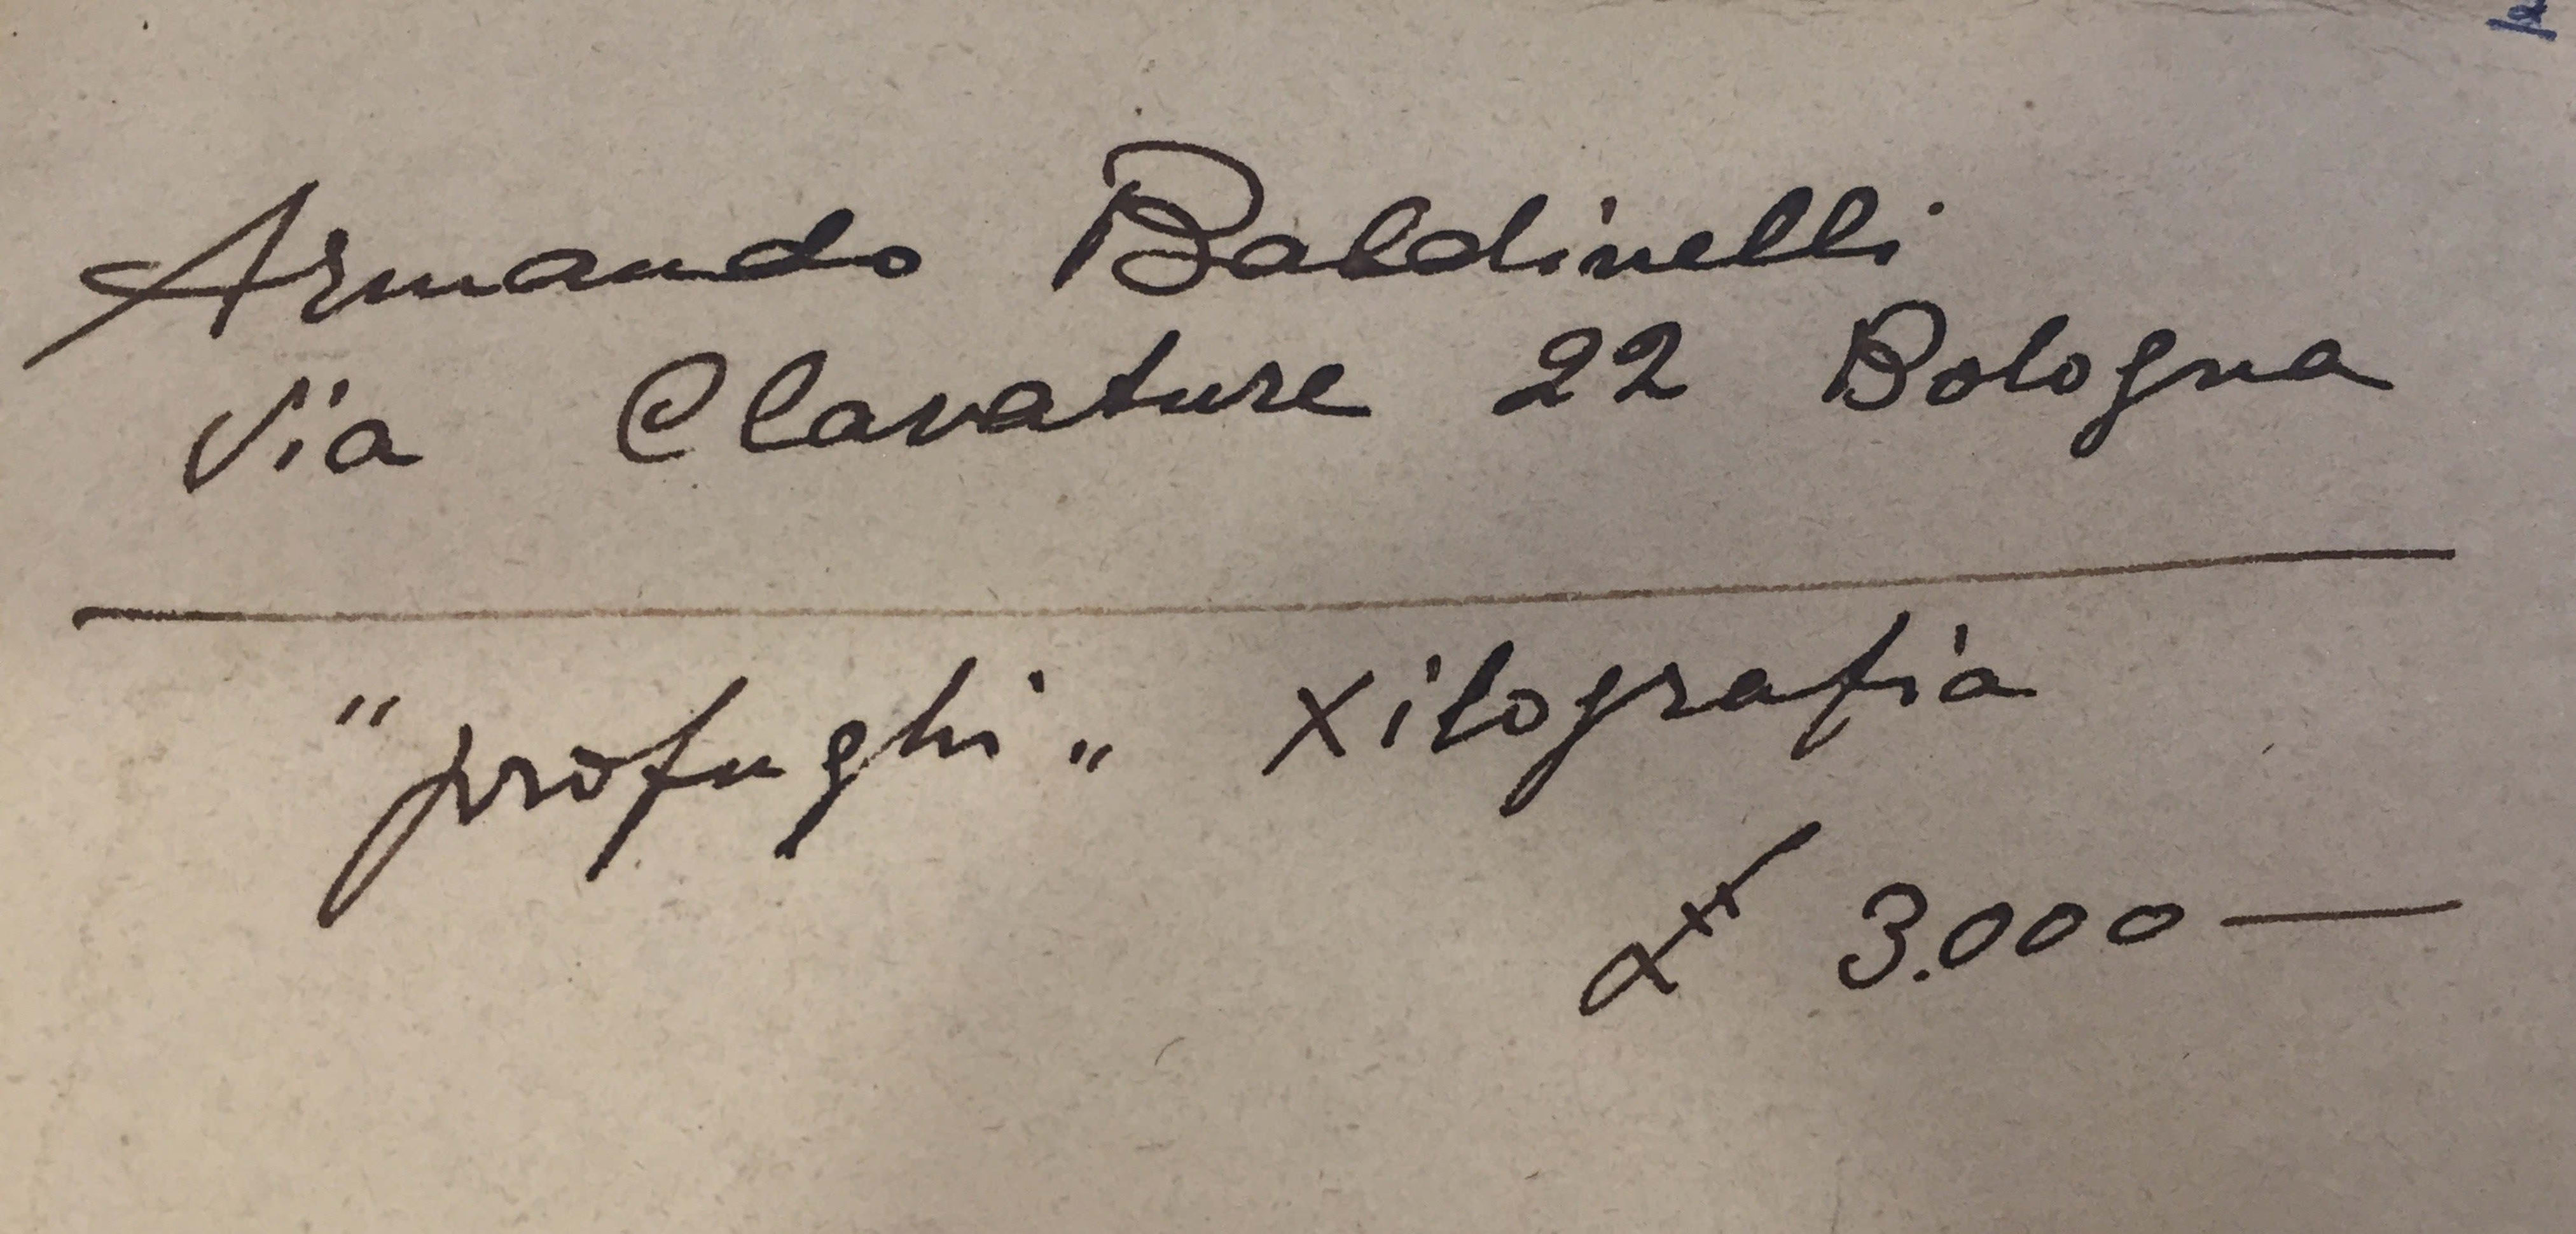 Armando Baldinelli
Via Clavature 22 Bologna
"profughi" xilografia
₤ 3.000—